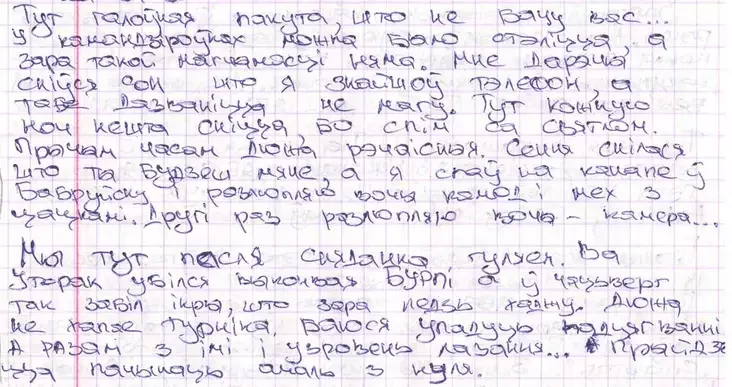 Тут галоўная пакута, што не бачу вас...
У камандзіроўках можна было стэліцца, а
зара такой магчымасці няма. Мне дарэчы
сніўся сон што я знайшоў тэлефон, а
табе дазваніцца не магу. Тут кожную
ноч нешта сніцца, бо спім са святлом.
Прычам часам дюжа рэчаісная. Сёння снілася
што ты будзеш мяне, а я спаў на канапе ў
Бабруйску і разлюпляю вочы камод і мех з
цацкамі. Другі раз разлюпляю вочы - камера...
Мы тут пасля сняданка гуляем. Ва
ўторак убілся выконвая БУРПІ а ў чацьверг
так забіл ікры, што зара ледзь хаджу. Дюжа
не хапае турніка. Баюся упадуць падцягванні
А разам з імі і узровень лазання... Прыйдзе
цца пачынаць амаль з нуля.